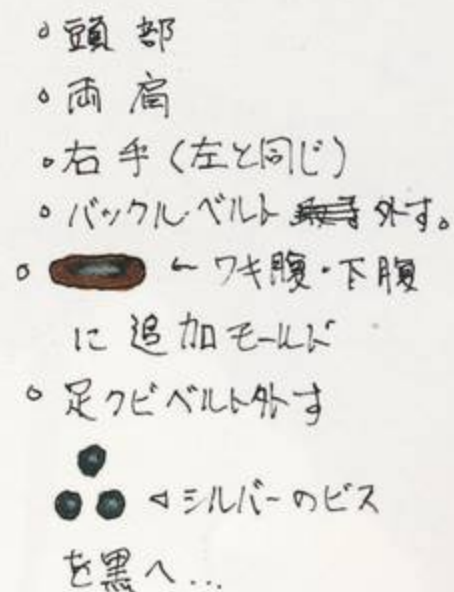 。頭部
。両肩
。右手(左と同じ)
。バックル・ベルト 外す。
。 ←ワキ腹・下腹
に追加モールド
。足クビベルト外す
◁シルバーのビス
を黒へ...